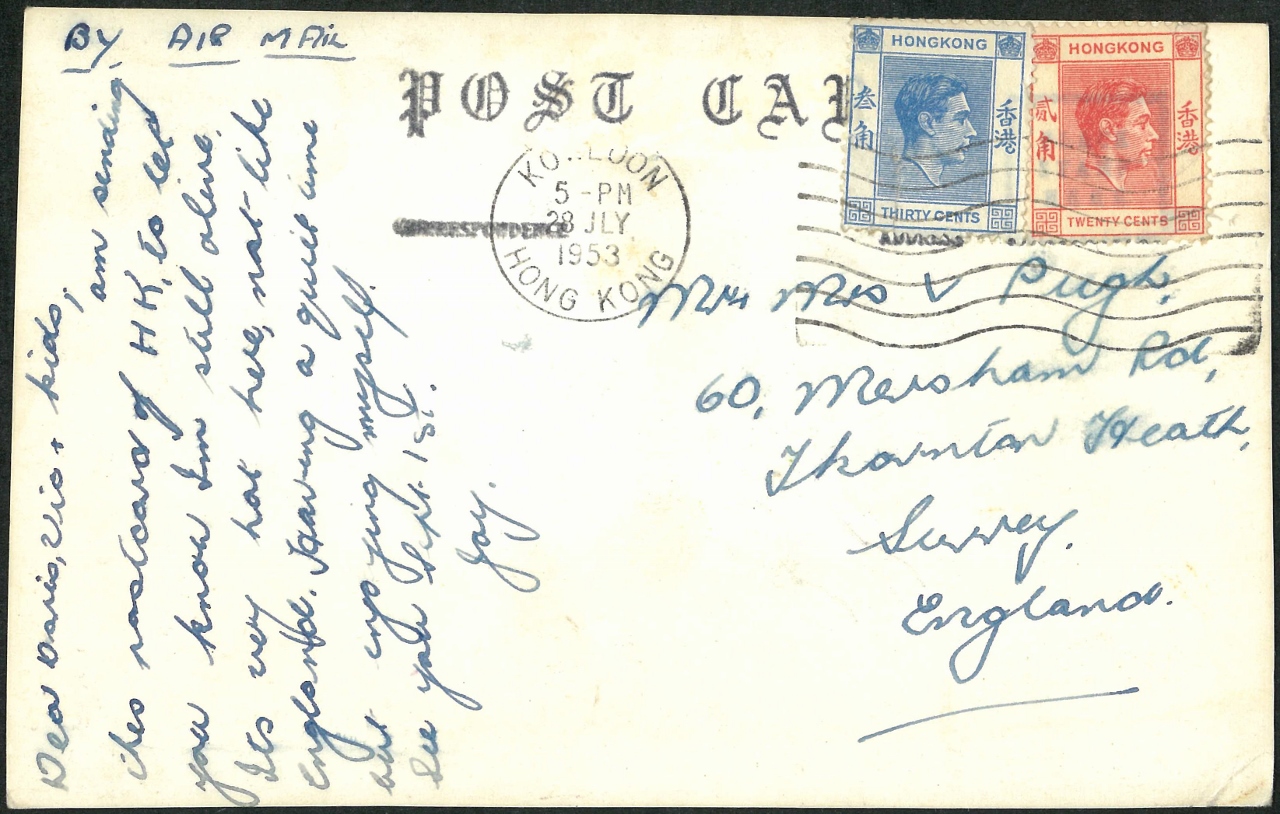 BY AIR MAIL
POST CA
HONGKONG
叁角
香港
THIRTY CENTS
HONGKONG
貳角
香港
TWENTY CENTS
KOWLOON
5 - PM
28 JLY
1953
HONG KONG
CORRESPONDENCE
ADDRESS
Dear Doris, Vic + kids,
am sending
this postcard of H K, to let
you know Im still alive.
Its very hot here, not like
England. Having a quiet time
but enjoying myself.
See you Sept. 1st.
Joy.
Mr Mrs V Pugh,
60, Mersham Rd,
Thornton Heath,
Surrey.
England.